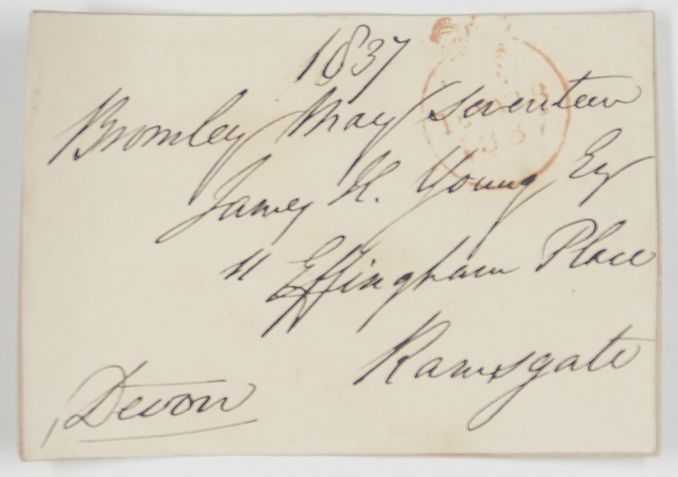 1837
Bromley May seventeen
James H. Young Esq
11 Effingham Place
Ramsgate
Devon